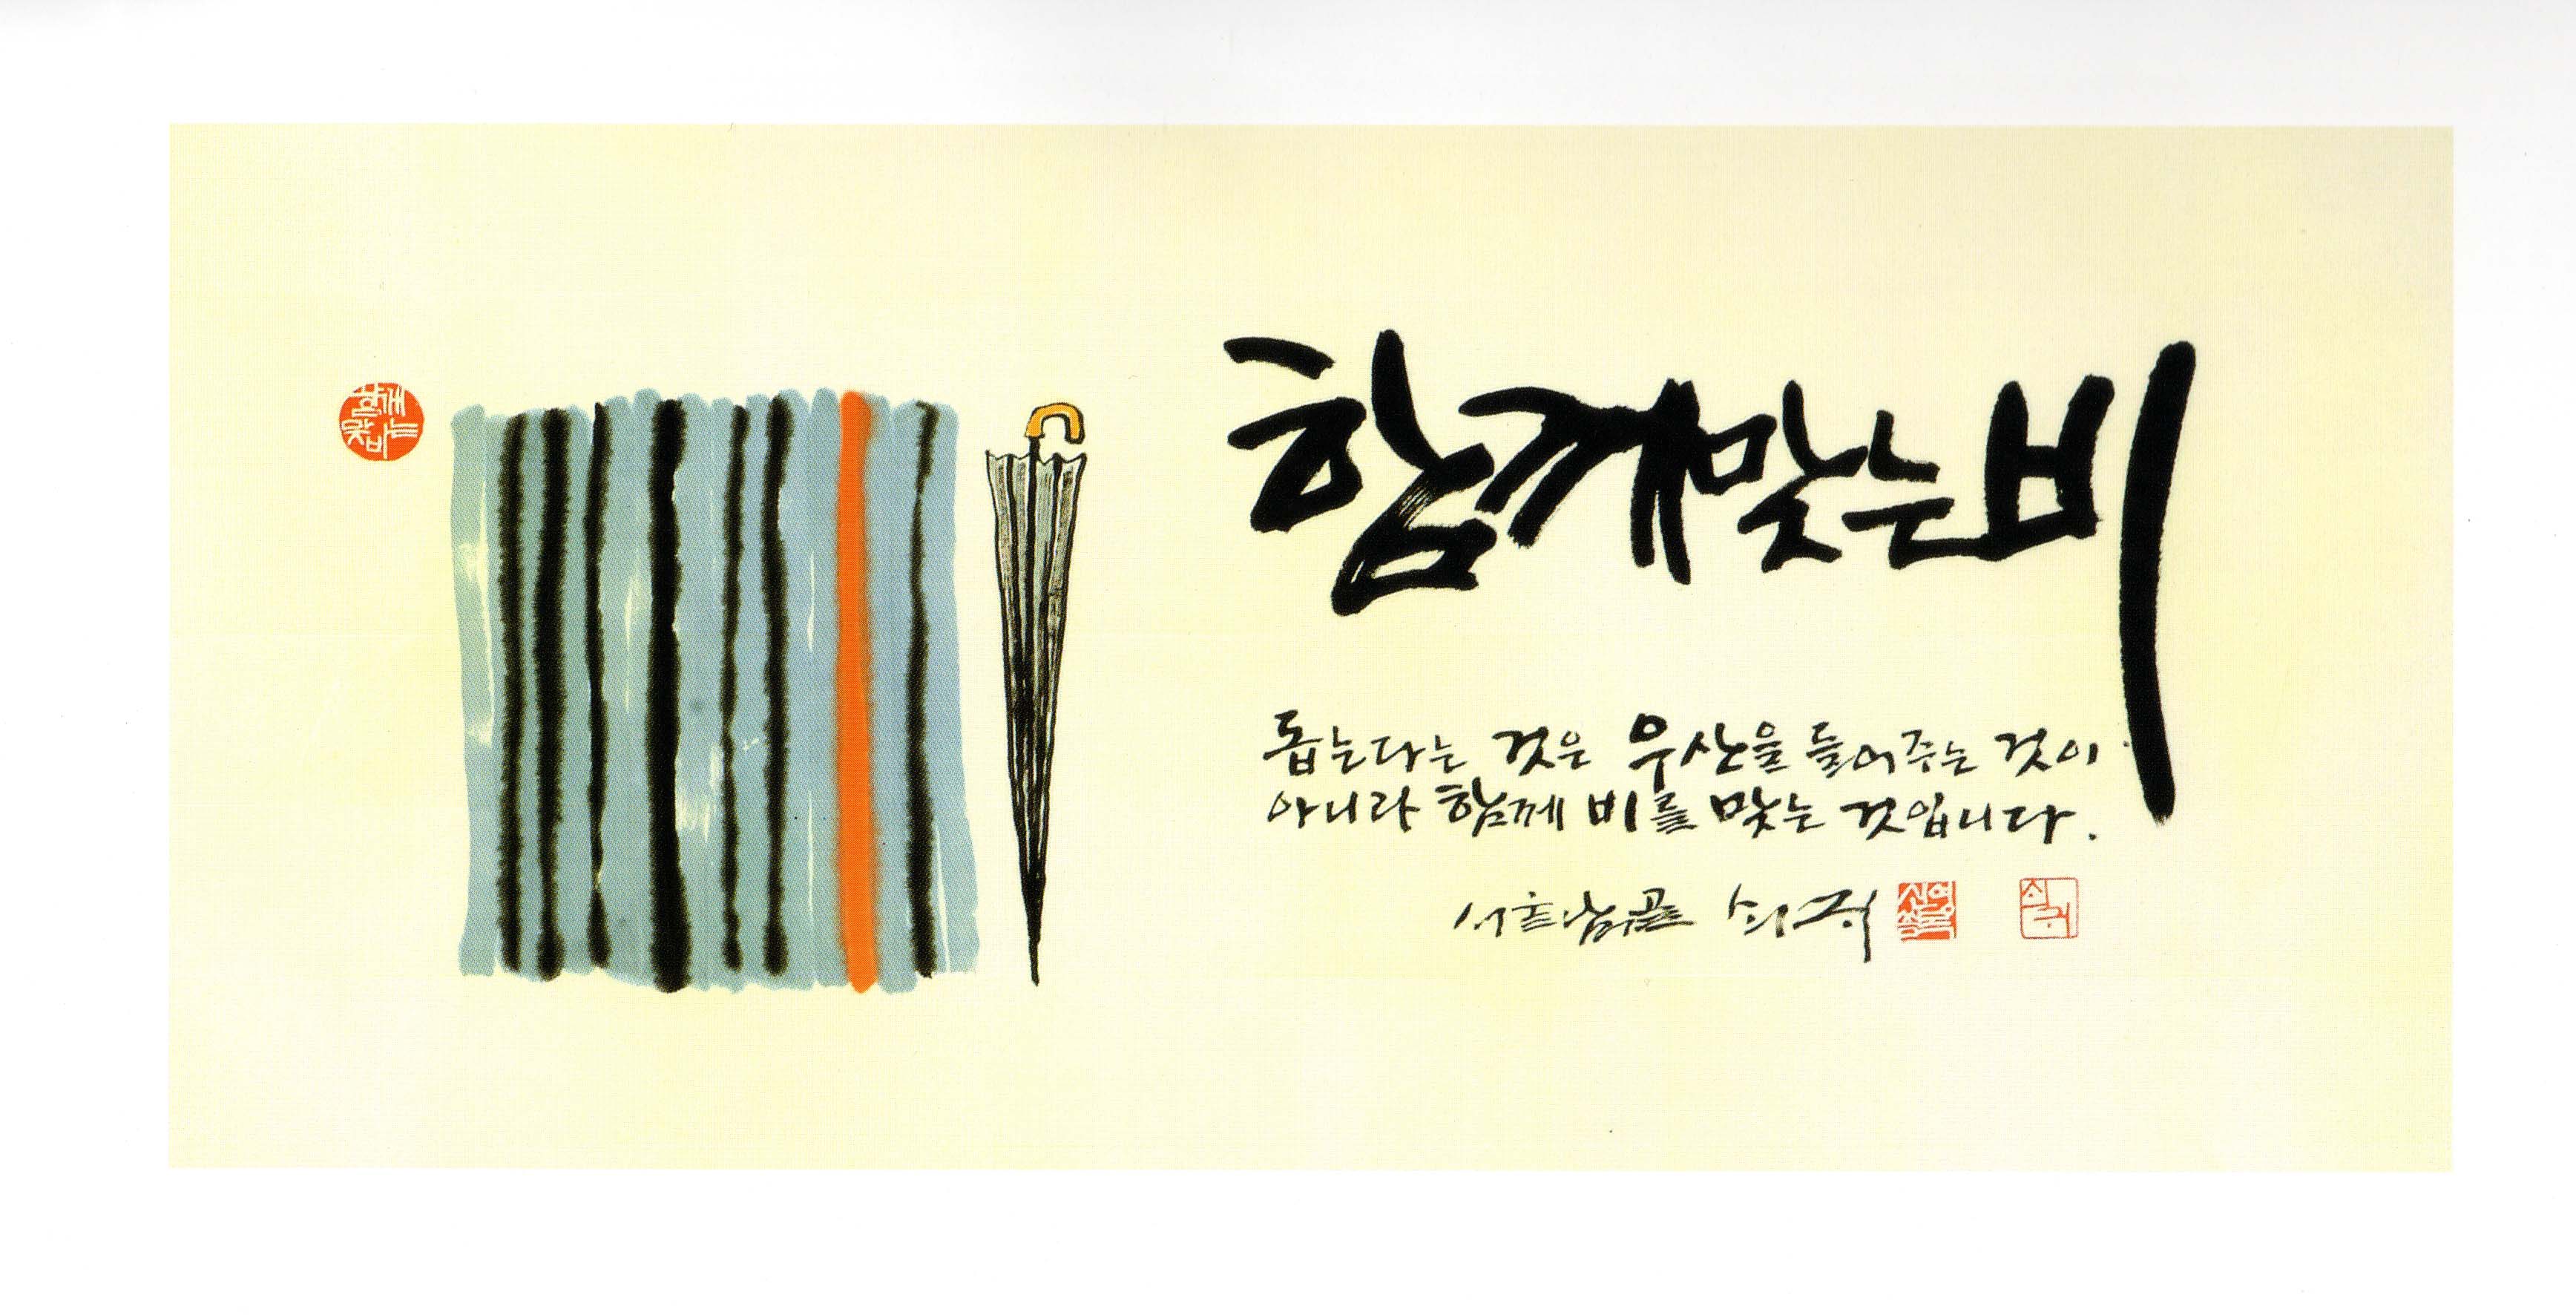 함께
맞는
비
함께맞는비
돕는다는 것은 우산을 들어주는 것이
아니라 함께 비를 맞는 것입니다.
쇠귀
신영
쇠귀